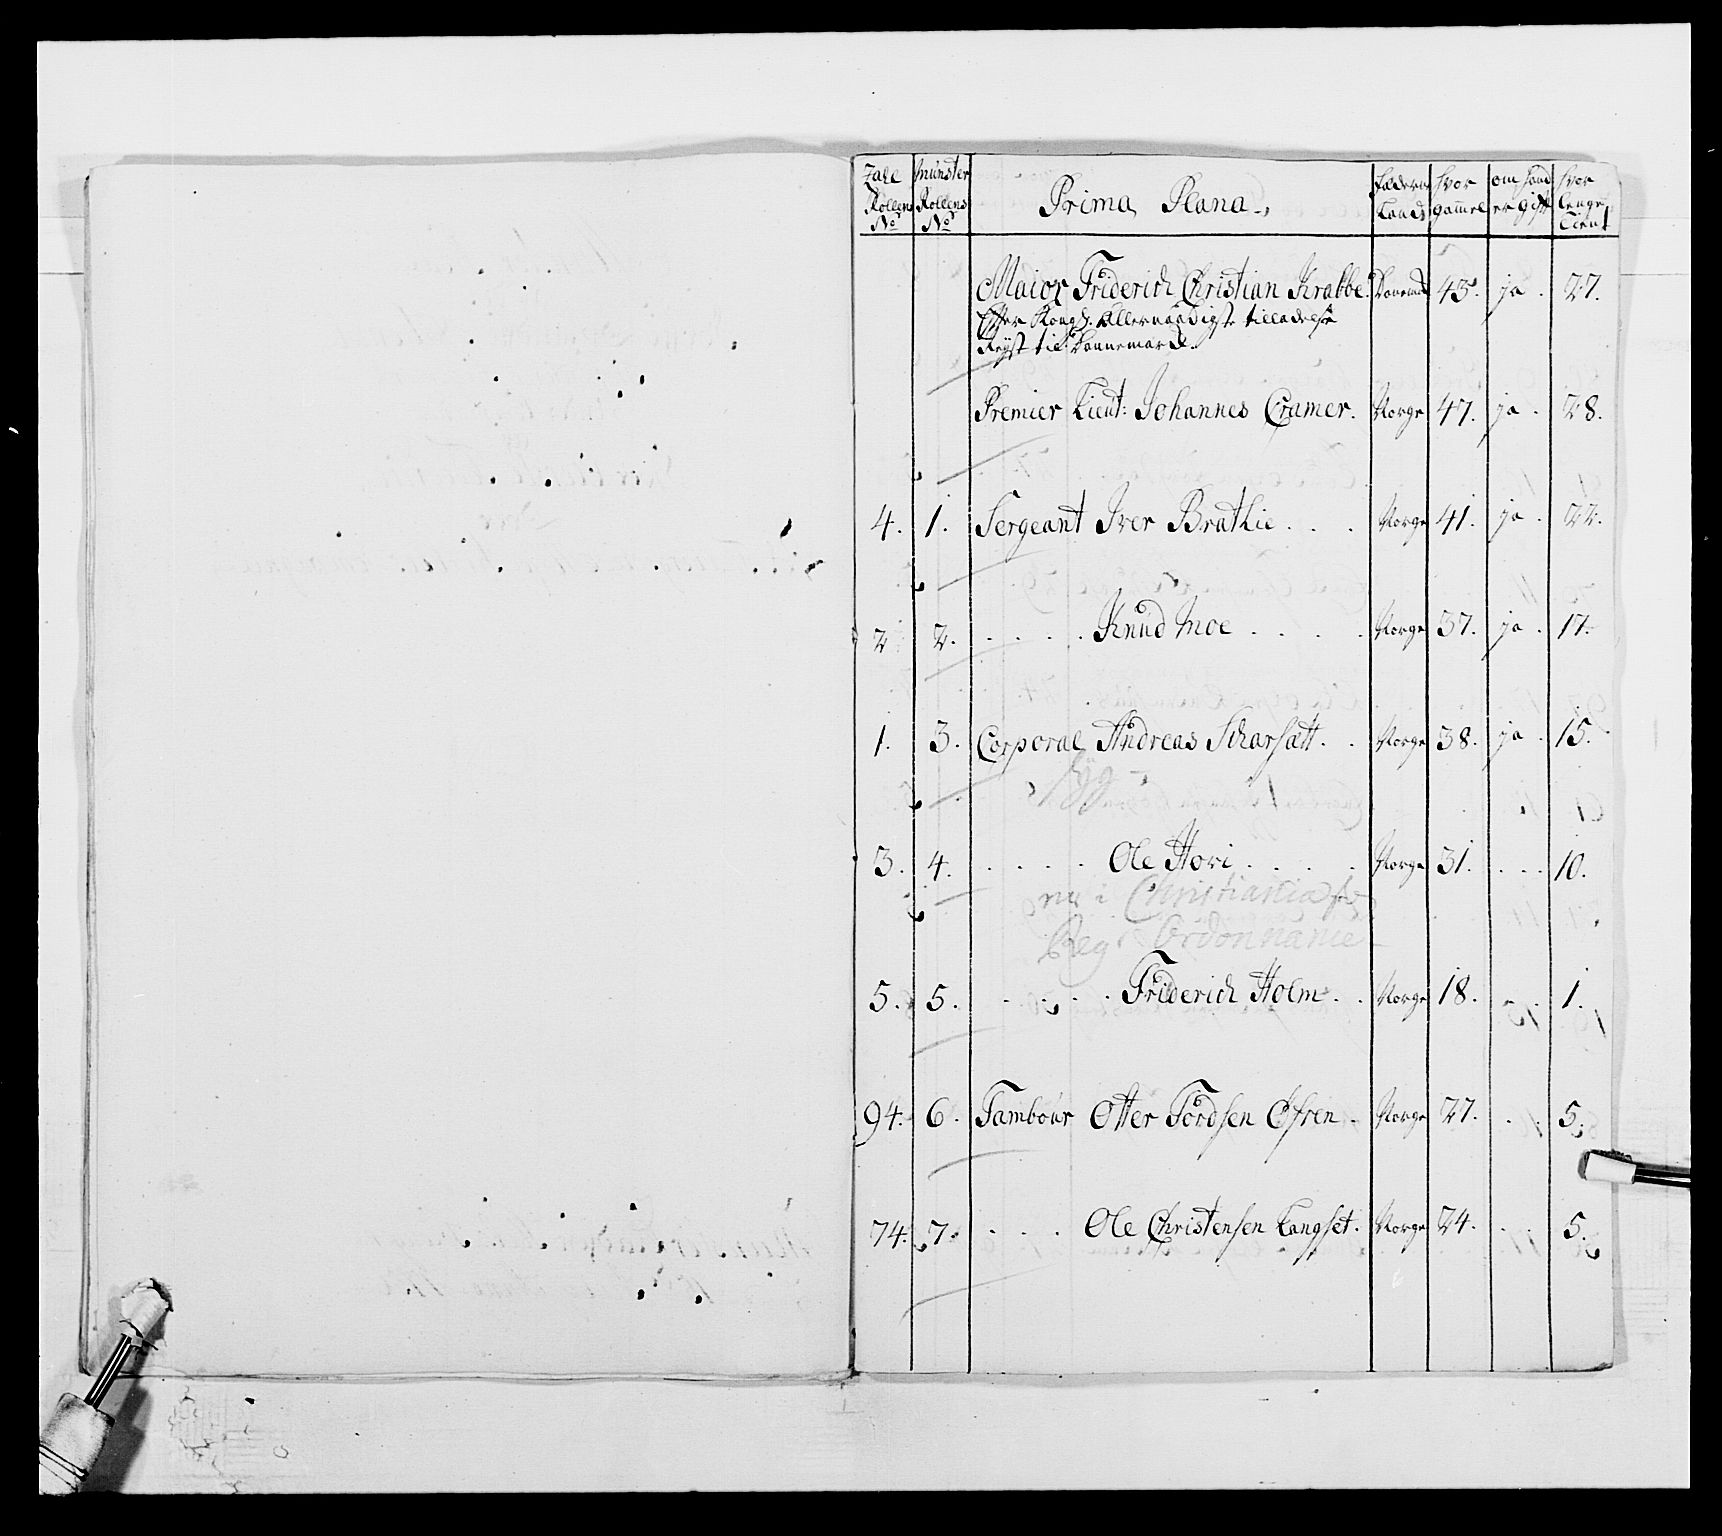 Zahl Rollens No | Munster Rollens No | Prima Plana | Fædern Land | hvor gammel | om hand er gift | hvor lenge Tient
Maior Friderich Christian Krabbe. Danemk 43. ja. 27.
Efter Kongl. Allernaadigste tilladelse
Reyst til Dannemarck.
Premier Lieut: Johannes Cramer. Norge 47. ja. 28.
4. 1. Sergeant Iver Brathie . . . Norge 41. ja. 22.
2 2. . . . . Knud Moe . . . . Norge 37. ja. 17.
1. 3. Corporal Andreas Scharsætt. . Norge 38. ja. 15.
Syg
3. 4. . . . . Ole Hovi . . . . Norge 31. . . . 10.
nu i Christiania
Reg Ordonnance
5. 5. . . . . Friderich Holm. . Norge 18. . . 1.
94. 6. Tambour Otter Tordsen Øfren. Norge 27. . 5.
74. 7. . . . Ole Christensen Langset. Norge 24. . . 5.